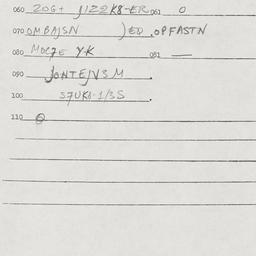 060 ZOG+ JIZZK8-ER 061 O
070 OMBAJSN )ED .OPFASTN
080 YK 081 —
090 JONTEJVSM .
100 S7UKA-1/3S .
110